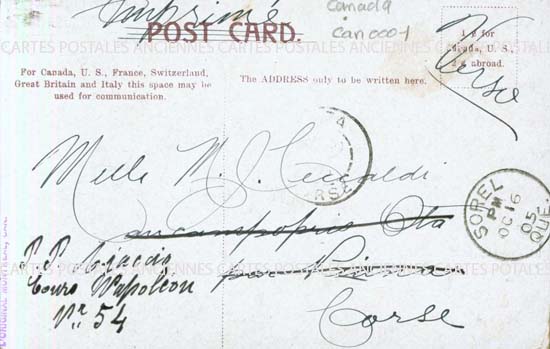 Imprimé
Canada
can0001
POST CARD.
1¢ for
Canada, U. S.,
2¢ abroad.
Verso
For Canada, U. S., France, Switzerland,
Great Britain and Italy this space may be
used for communication.
The ADDRESS only to be written here.
CARTES POSTALES ANCIENNES CARTES POSTALES ANCIENNES CARTES POSTALES
Melle M. J. Ceccaldi
CORSE
SOREL
PM
OC 16
05
QUE.
Ota
Ajaccio
par Piana
Cours Napoléon
No. 54
Corse